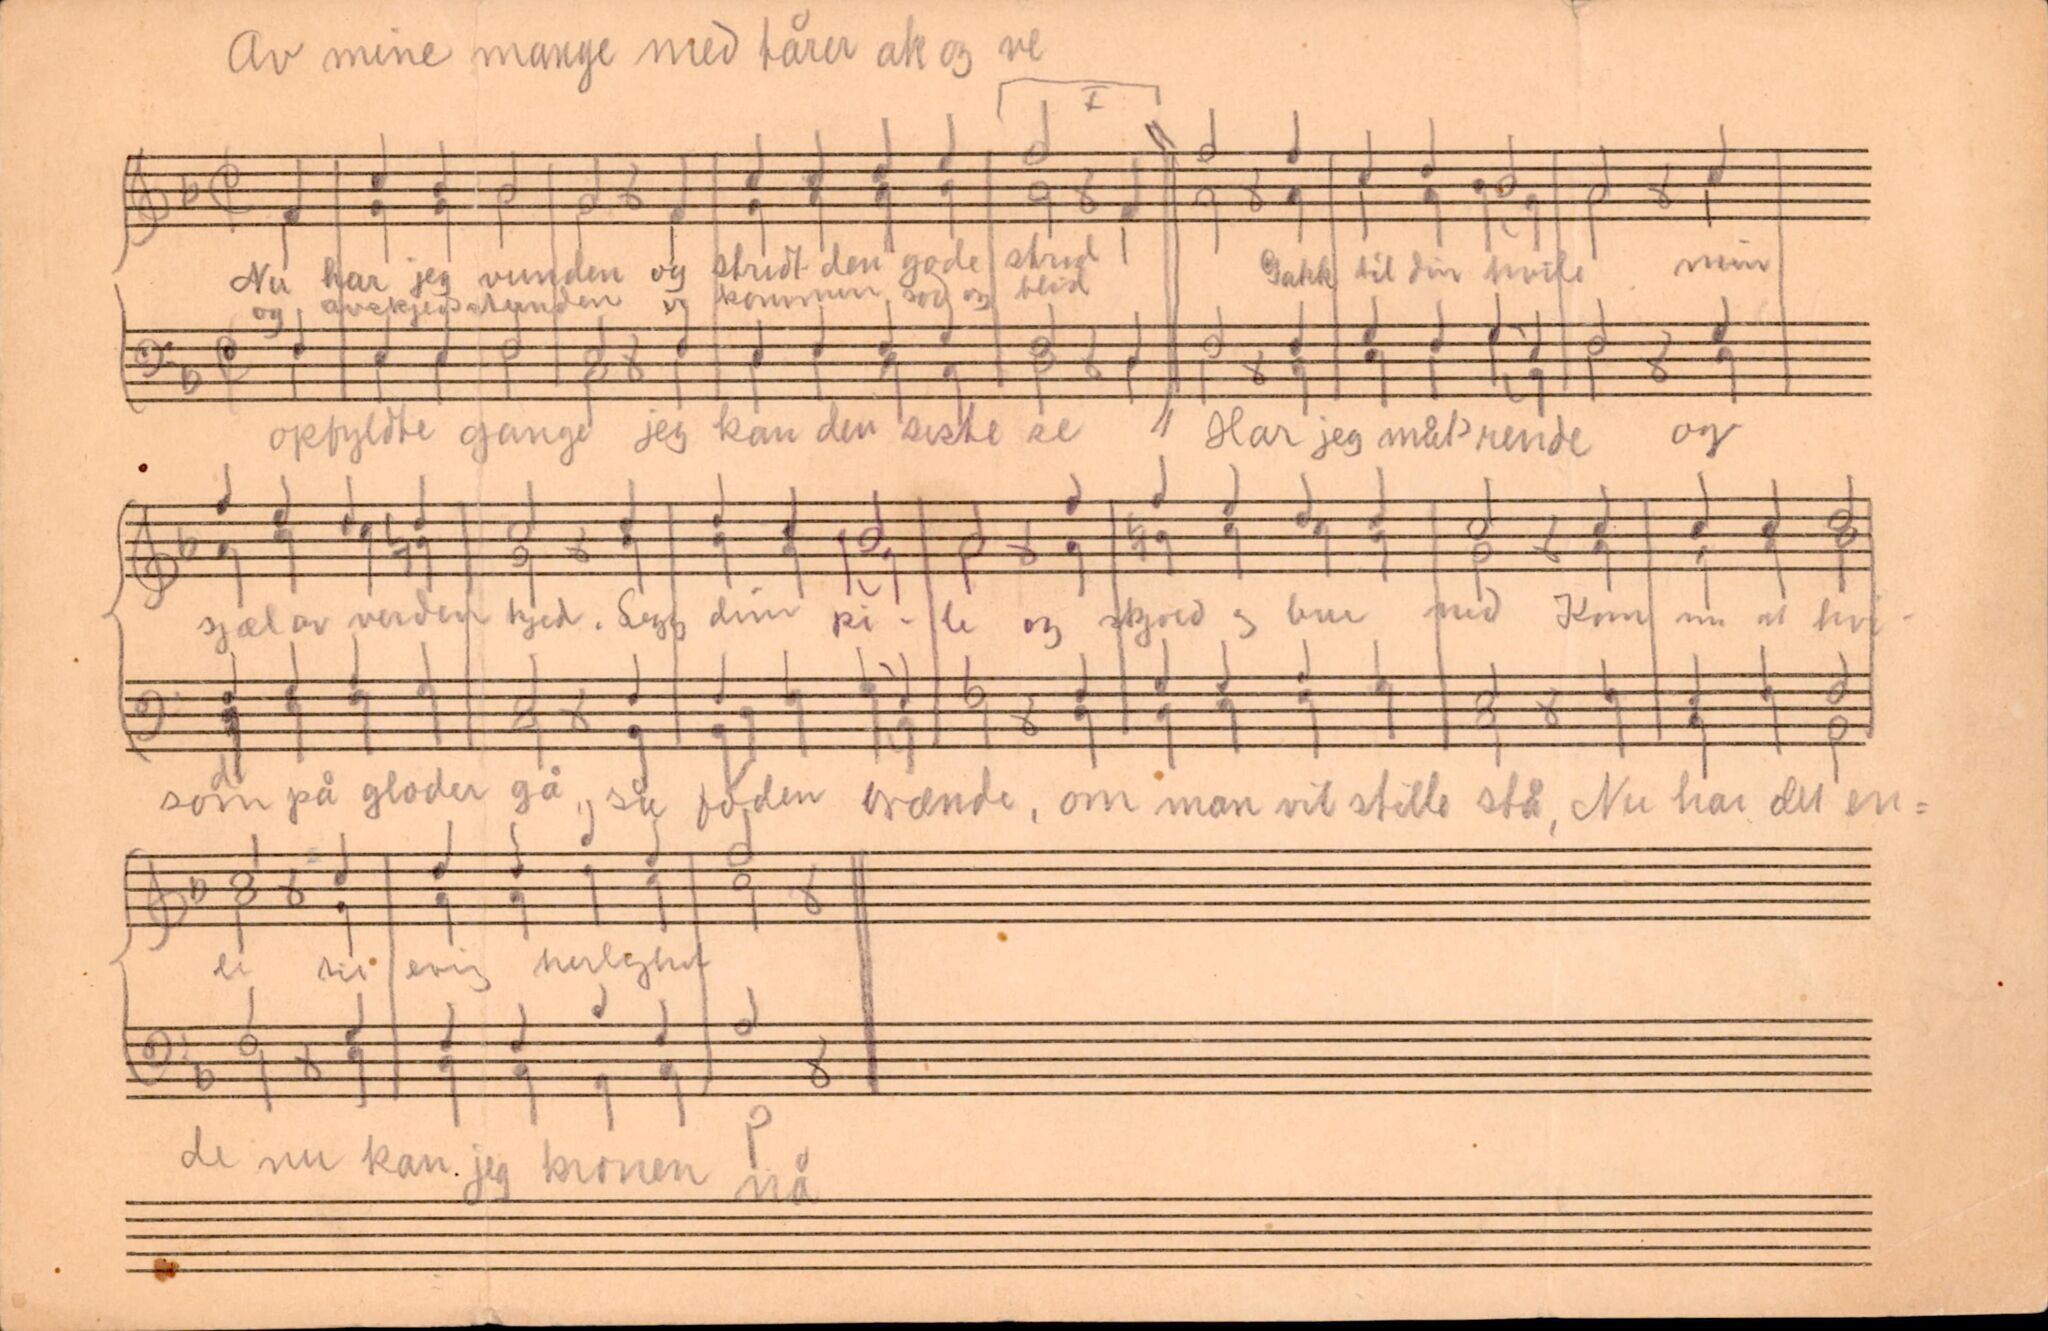 Av mine mange med tårer ak og ve
I
Nu har jeg vunden og stridt den gode strid Gakk til din hvile min
og avskjedsstunden er kommen sød og blid
opfyldte gange jeg kan den siste se Har jeg måt rende og
sjæl av verden kjed. Legg din pi - le og skjold og bue ned Kom nu at hvi -
som på gloder gå, så foden brænde, om man vil stille stå, Nu har det en=
le til evig herlighet
de nu kan jeg kronen nå